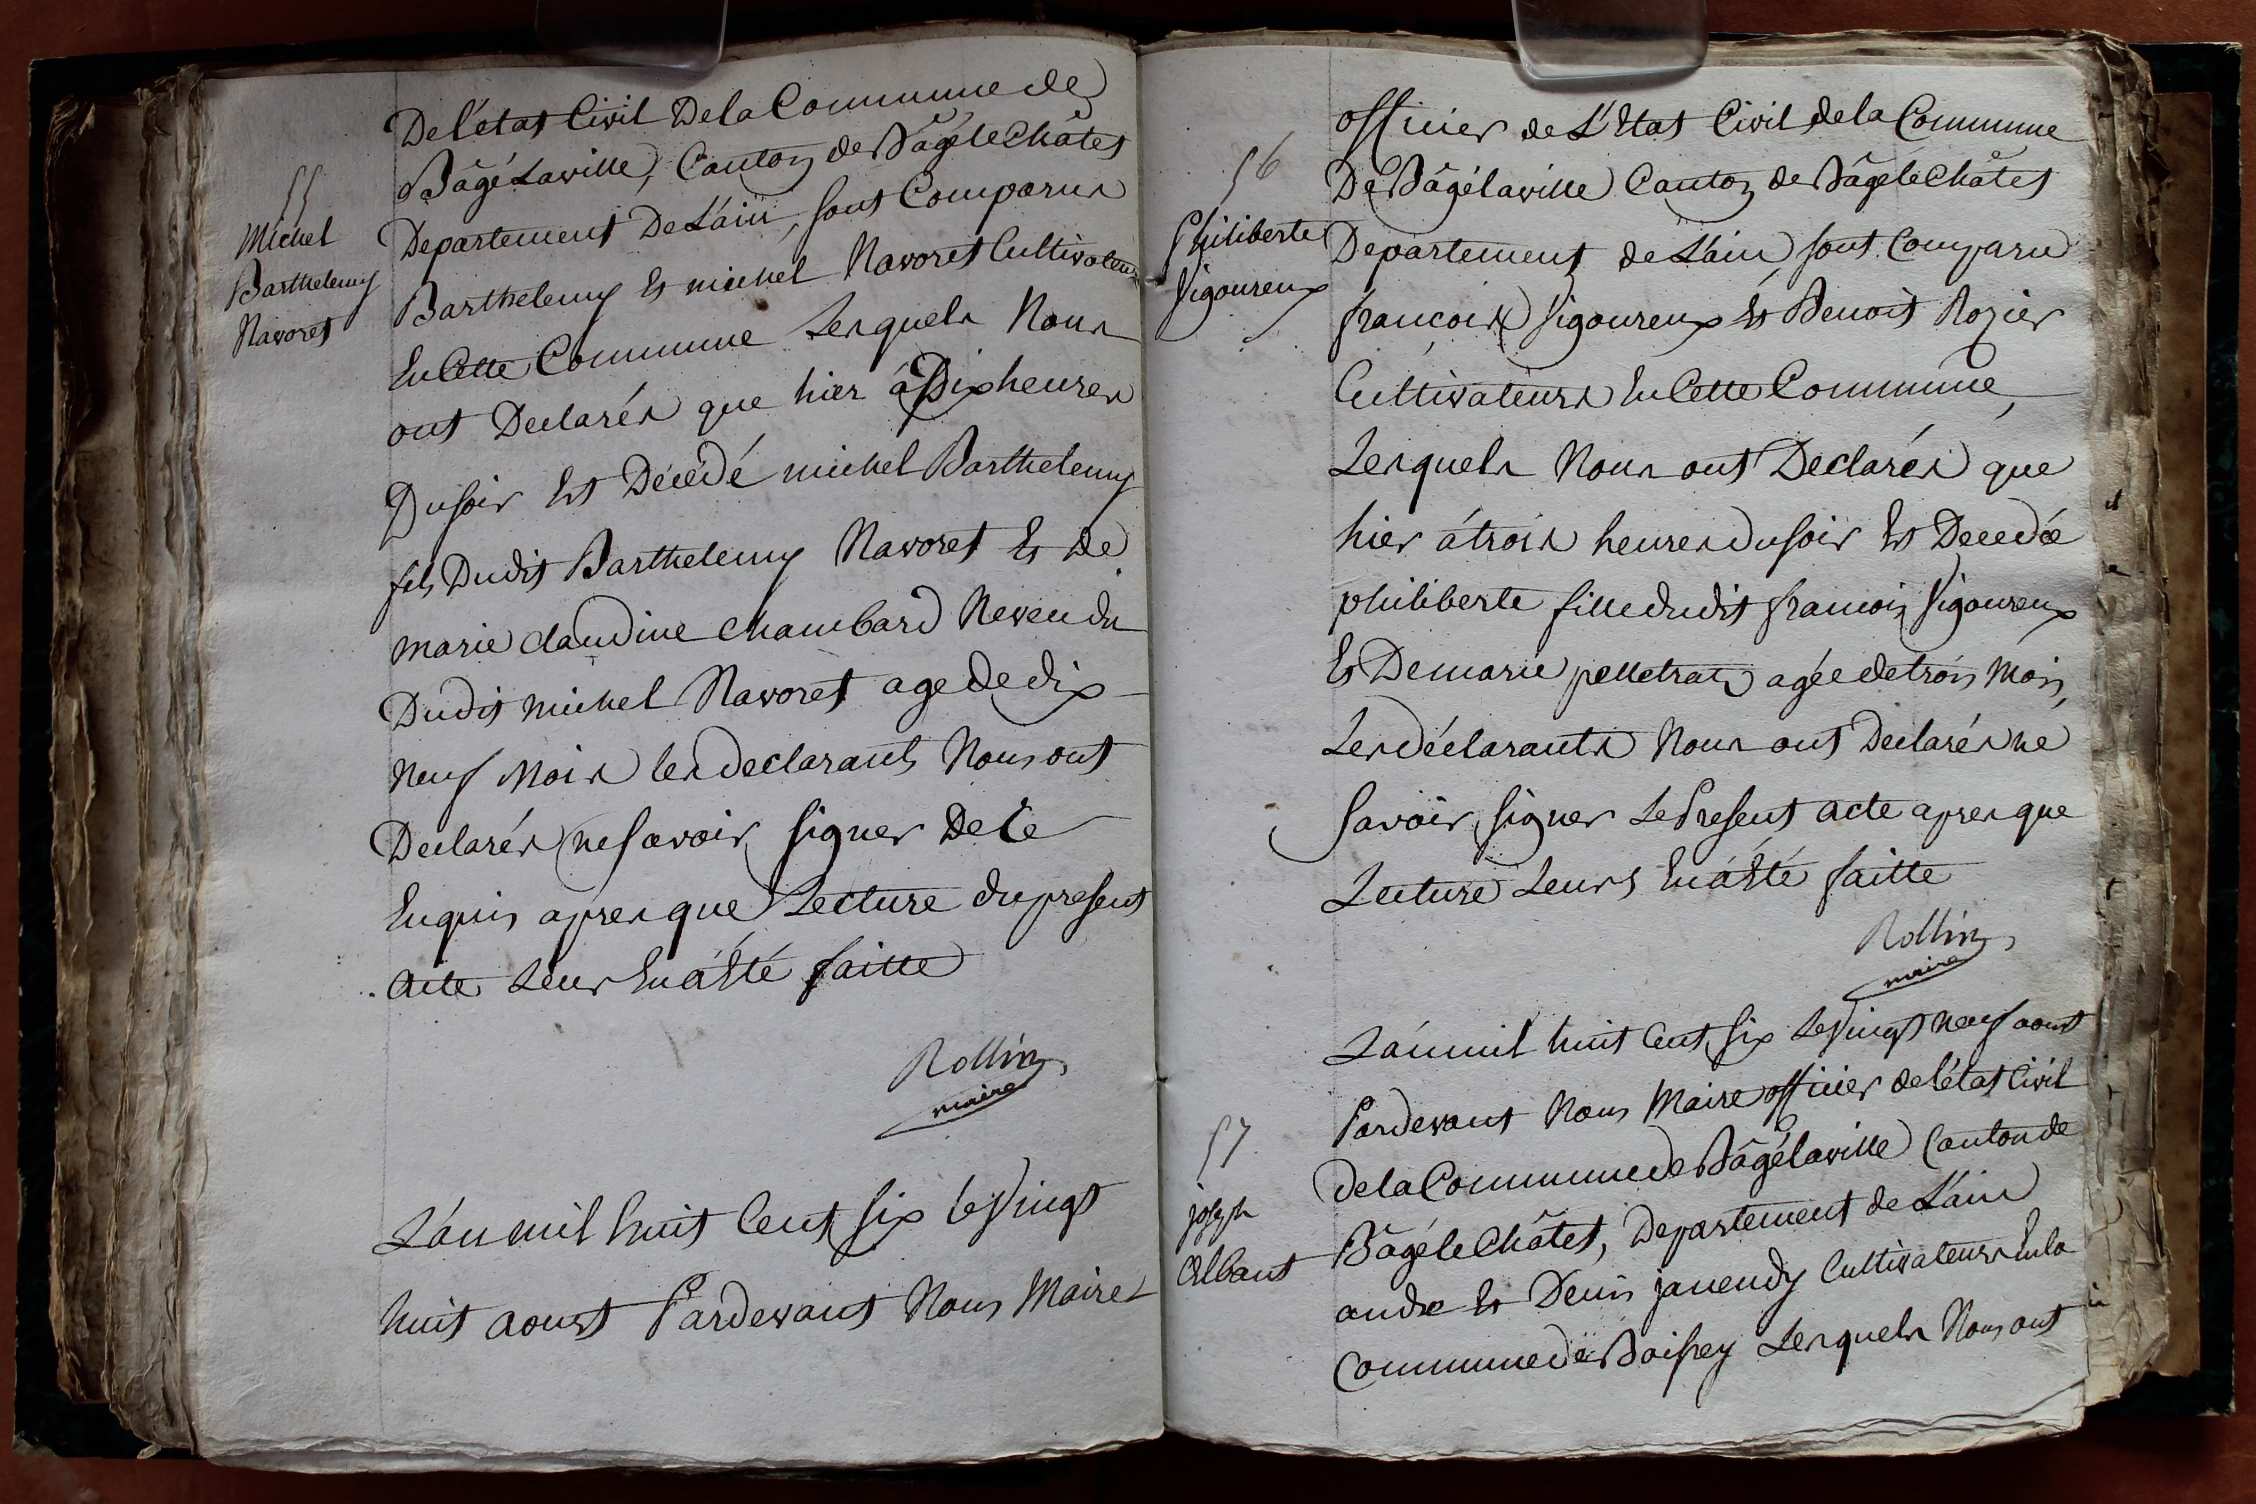 De l'état Civil De la Commune de
Bâgé Laville, Canton de Bâgé le Châtel
55
Departement De L'ain, sont Comparus
Michel
Barthelemy
Navoret
Barthelemy Et michel Navoret Cultivateurs
En Cette Commune Lesquels Nous
ont Declarés que hier á Dix heures
Du soir Est Décédé michel Barthelemy
fils Dudit Barthelemy Navoret Et de
marie claudine Chambard Neveu du
Dudit michel Navoret age de dix
Neuf Mois les declarants Nous ont
Declarés ne savoir signer De Ce
Enquis apres que Lecture du present
acte Leur En á Eté faitte
Rollin
maire
L'án mil huit Cent six le Vingt
huit aoust Pardevant Nous Maire
officier de L'Etat Civil de la Commune
56
De Bâgé laville Canton de Bâgé le Châtel
Philiberte
Vigoureux
Departement de L'ain sont Comparu
françois Vigoureux Et Benoit Rozier
Cultivateurs En Cette Commune,
Lesquels Nous ont Declarés que
hier á trois heures du soir Est Decedée
philiberte fille dudit francois Vigoureux
Et De marie pelletrat agée de trois Mois,
Les déclarants Nous ont Declarés ne
Savoir signer Le Present acte apres que
Lecture Leurs En á Eté faitte
Rollin
maire
L'án mil huit Cent six Le Vingt neuf aoust
Pardevant Nous Maire officier de l'état Civil
57
de la Commune de Bâgé laville Canton de
joseph
Albant
Bâgé le Châtel, Departement de L'ain
andre Et Denis janendy Cultivateurs En la
Commune de Boissey Lesquels Nous ont